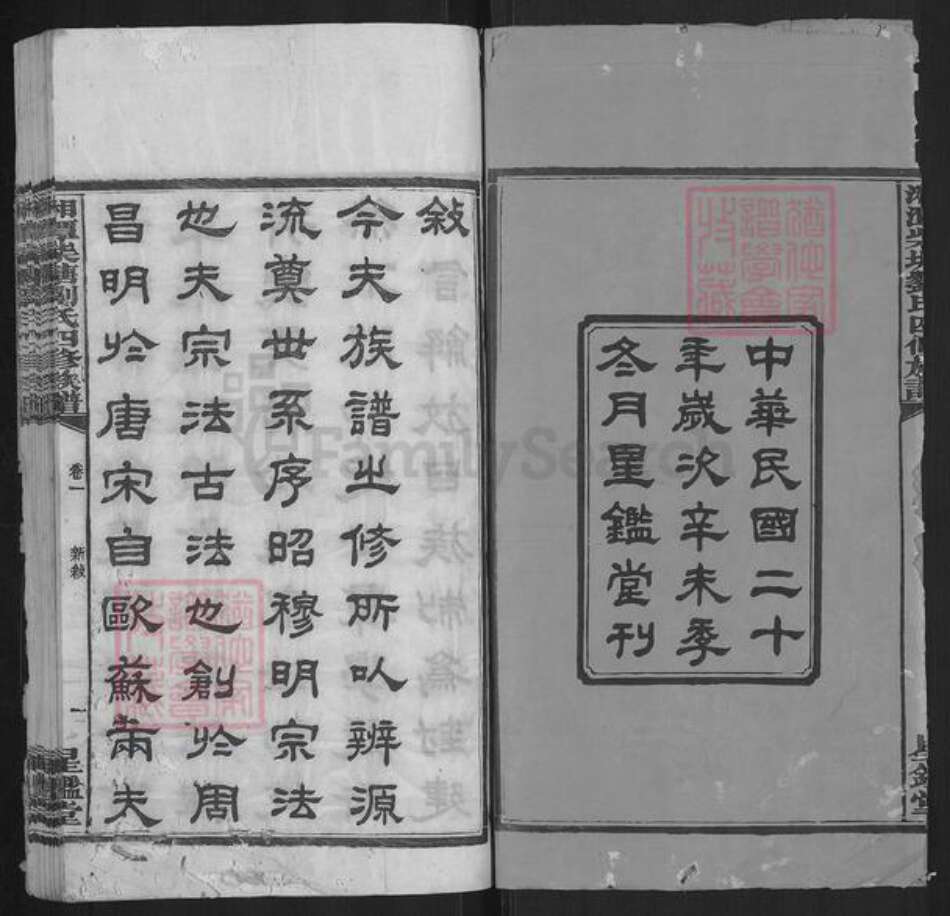 中華民國二十
年歲次辛未季
冬月星鑑堂刊
敍
今夫族譜之修所以辨源
流奠世系序昭穆明宗法
也夫宗法古法也創於周
昌明於唐宋自歐蘇兩夫
劉氏四修族譜
卷一
新敍
一
星鑑堂
星鑑堂
FamilySearch